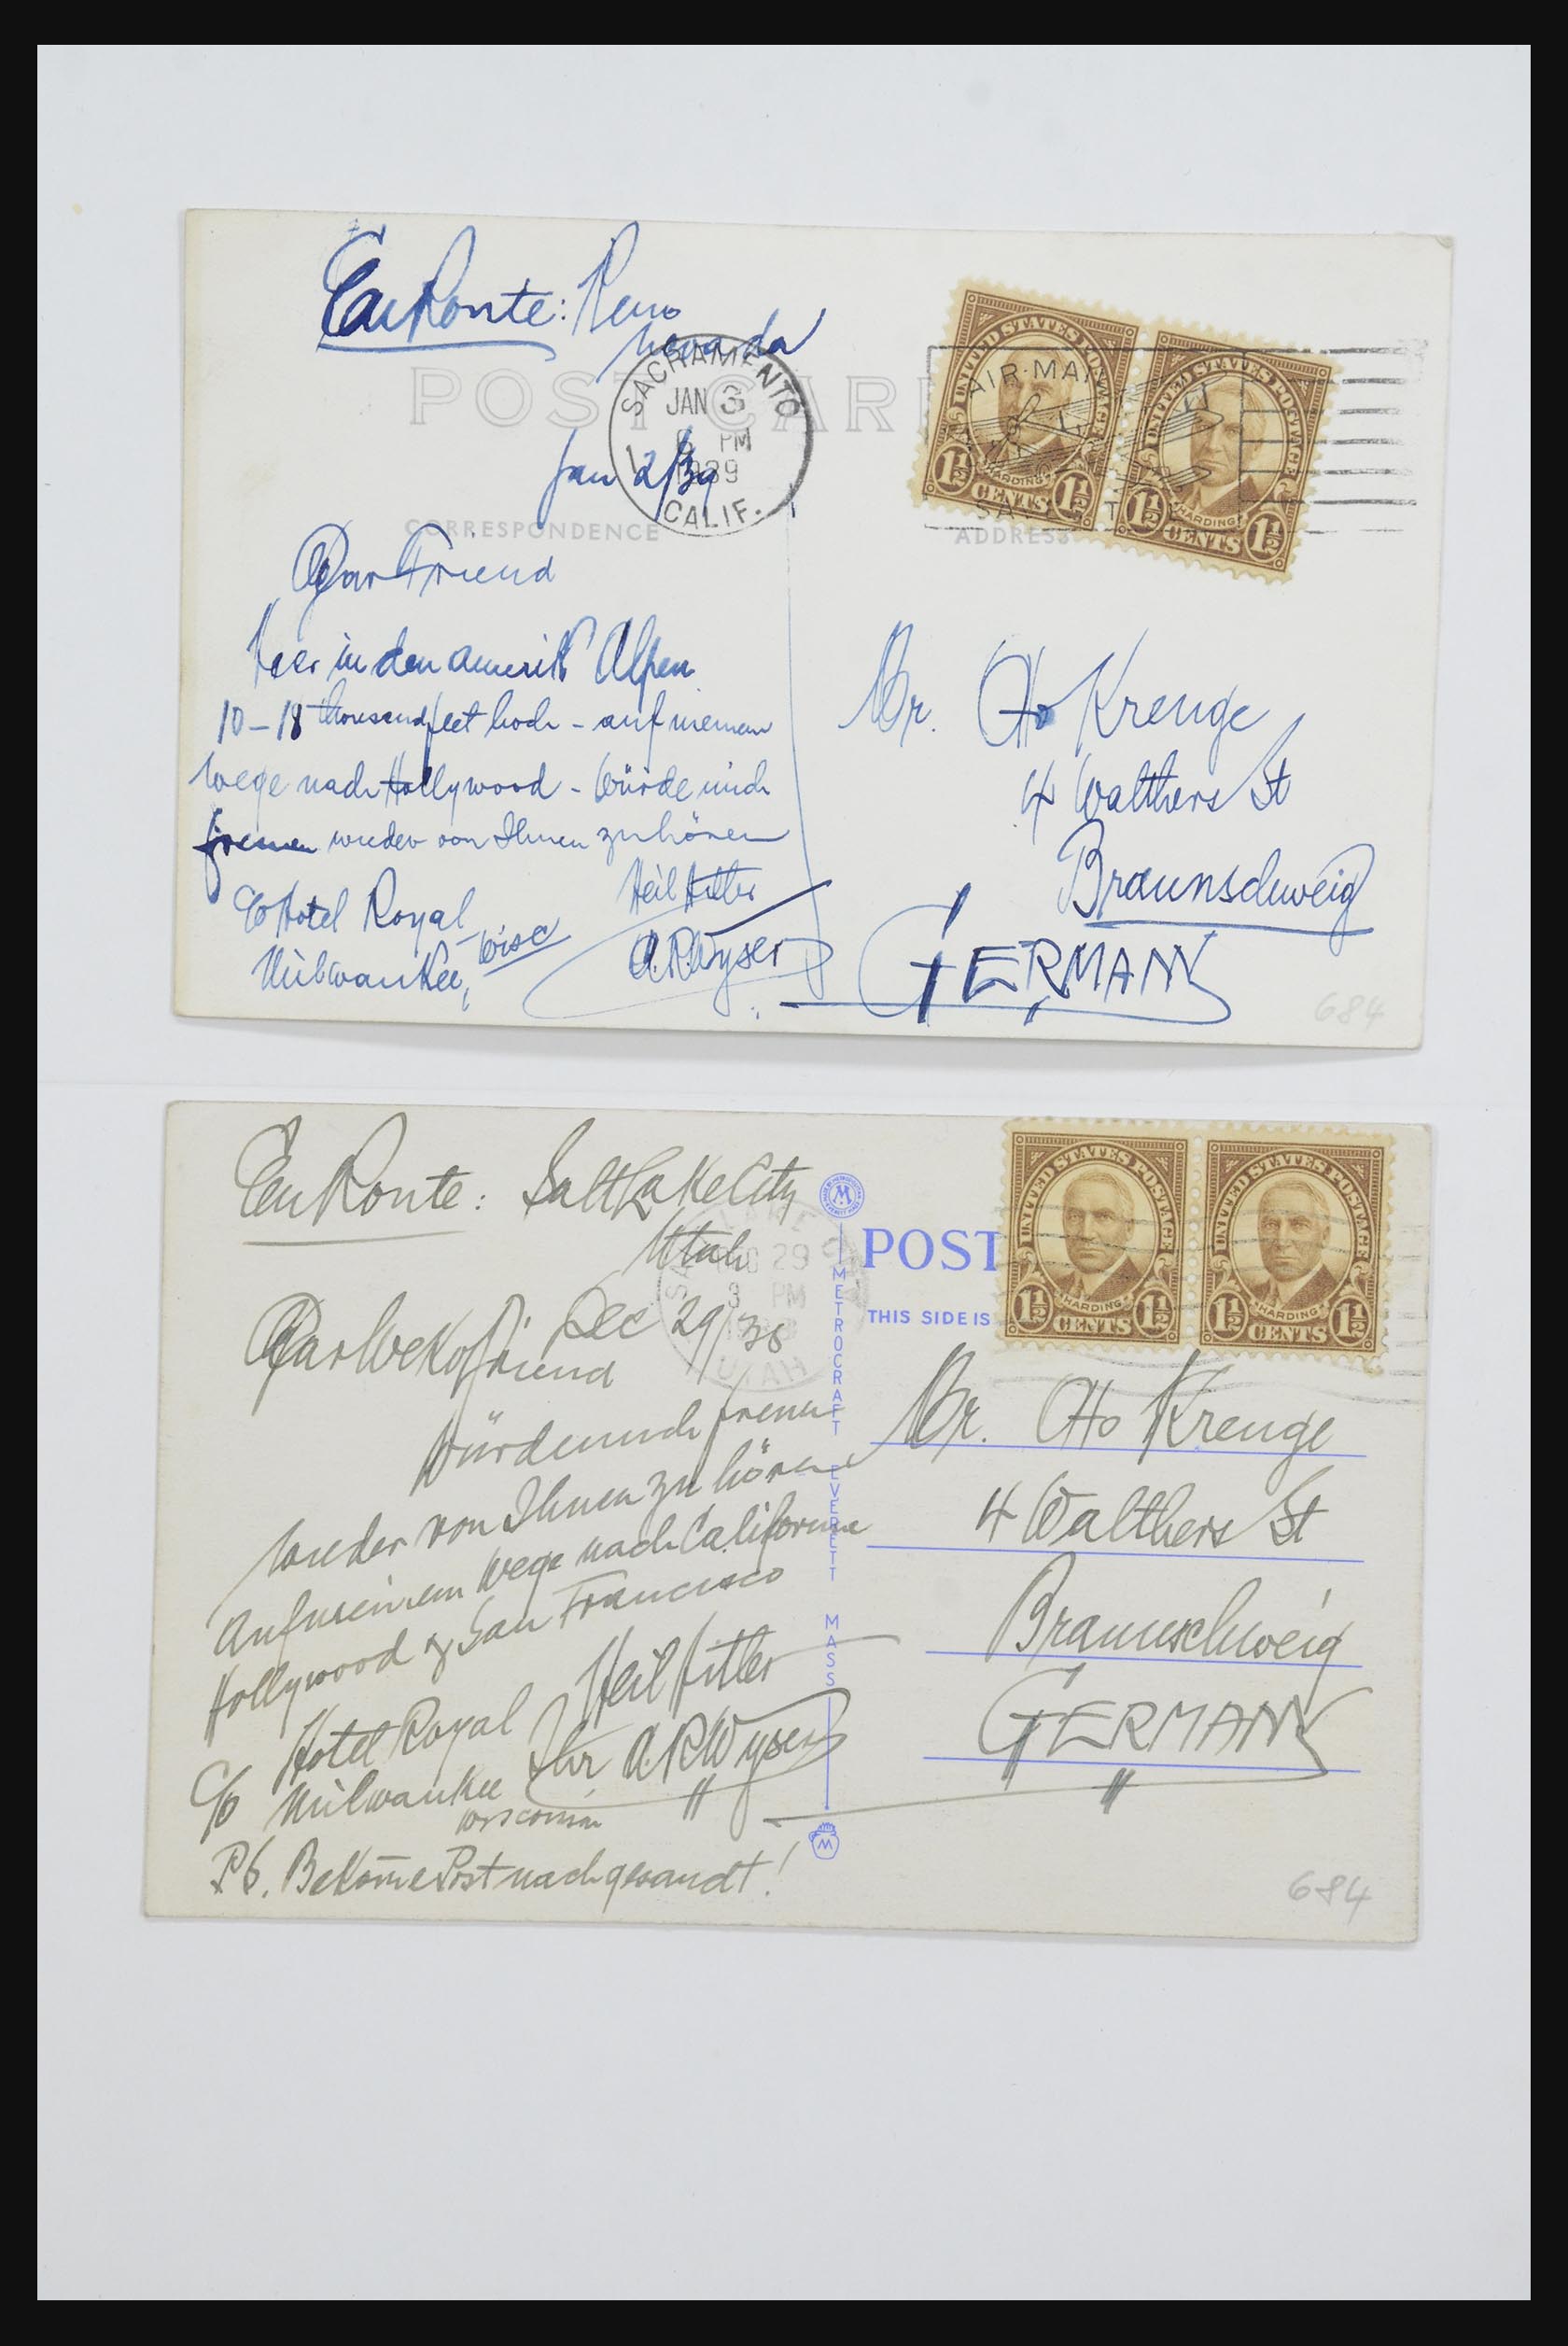 En Route: Reno
Nevada
POST CARD
SACRAMENTO
JAN 3
PM
1939
CALIF.
Jan 2/39
CORRESPONDENCE
ADDRESS
AIR MAIL
UNITED STATES POSTAGE
HARDING
1½ CENTS 1½
UNITED STATES POSTAGE
HARDING
1½ CENTS 1½
Dear Friend
hier in den amerik Alpen
10-18 thousand feet hoch - auf meinem
Wege nach Hollywood - Würde mich
freuen wieder von Ihnen zu hören
Heil Hitler
A.R.Wyser
c/o Hotel Royal
Milwaukee, Wisc
Mr. Otto Krenge
4 Walthers St
Braunschweig
GERMANY
684
En Route: Salt Lake City
Utah
Dec 29/38
29
3 PM
UTAH
Dear Friend
Würde mich freuen
wieder von Ihnen zu hören
Auf meinem Wege nach California
Hollywood & San Francisco
Heil Hitler
Ihr A.R.Wyser
c/o Hotel Royal
Milwaukee
Wisconsin
PS. Bekom̄e Post nachgesandt!
M
METROCRAFT EVERETT MASS
M
POST
THIS SIDE IS
UNITED STATES POSTAGE
HARDING
1½ CENTS 1½
UNITED STATES POSTAGE
HARDING
1½ CENTS 1½
Mr. Otto Krenge
4 Walthers St
Braunschweig
GERMANY
684